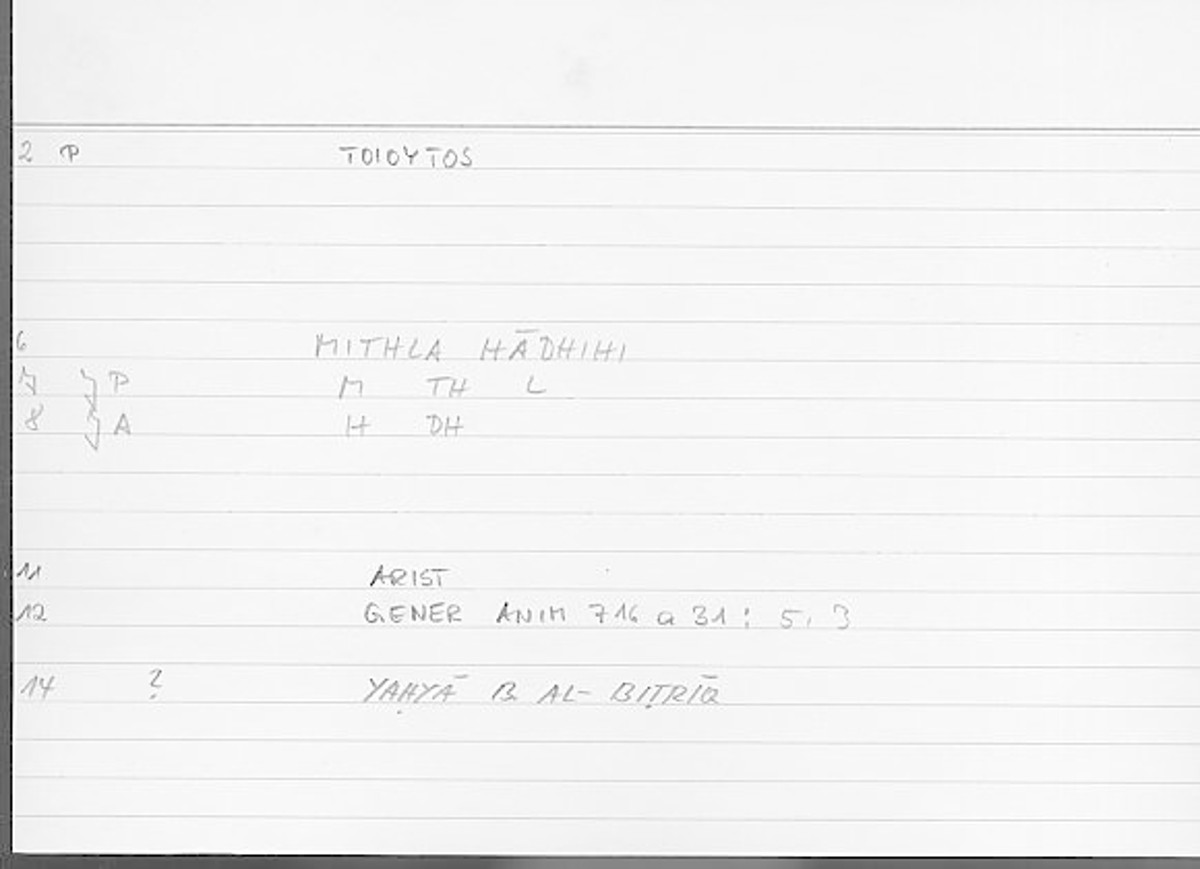 2 P TOIOYTOS
6 MITHLA HĀDHIHI
7 } P M TH L
8 } A H DH
11 ARIST
12 GENER ANIM 716 a 31 : 5, 3
14 ? YAḤYĀ B AL-BIṬRĪQ